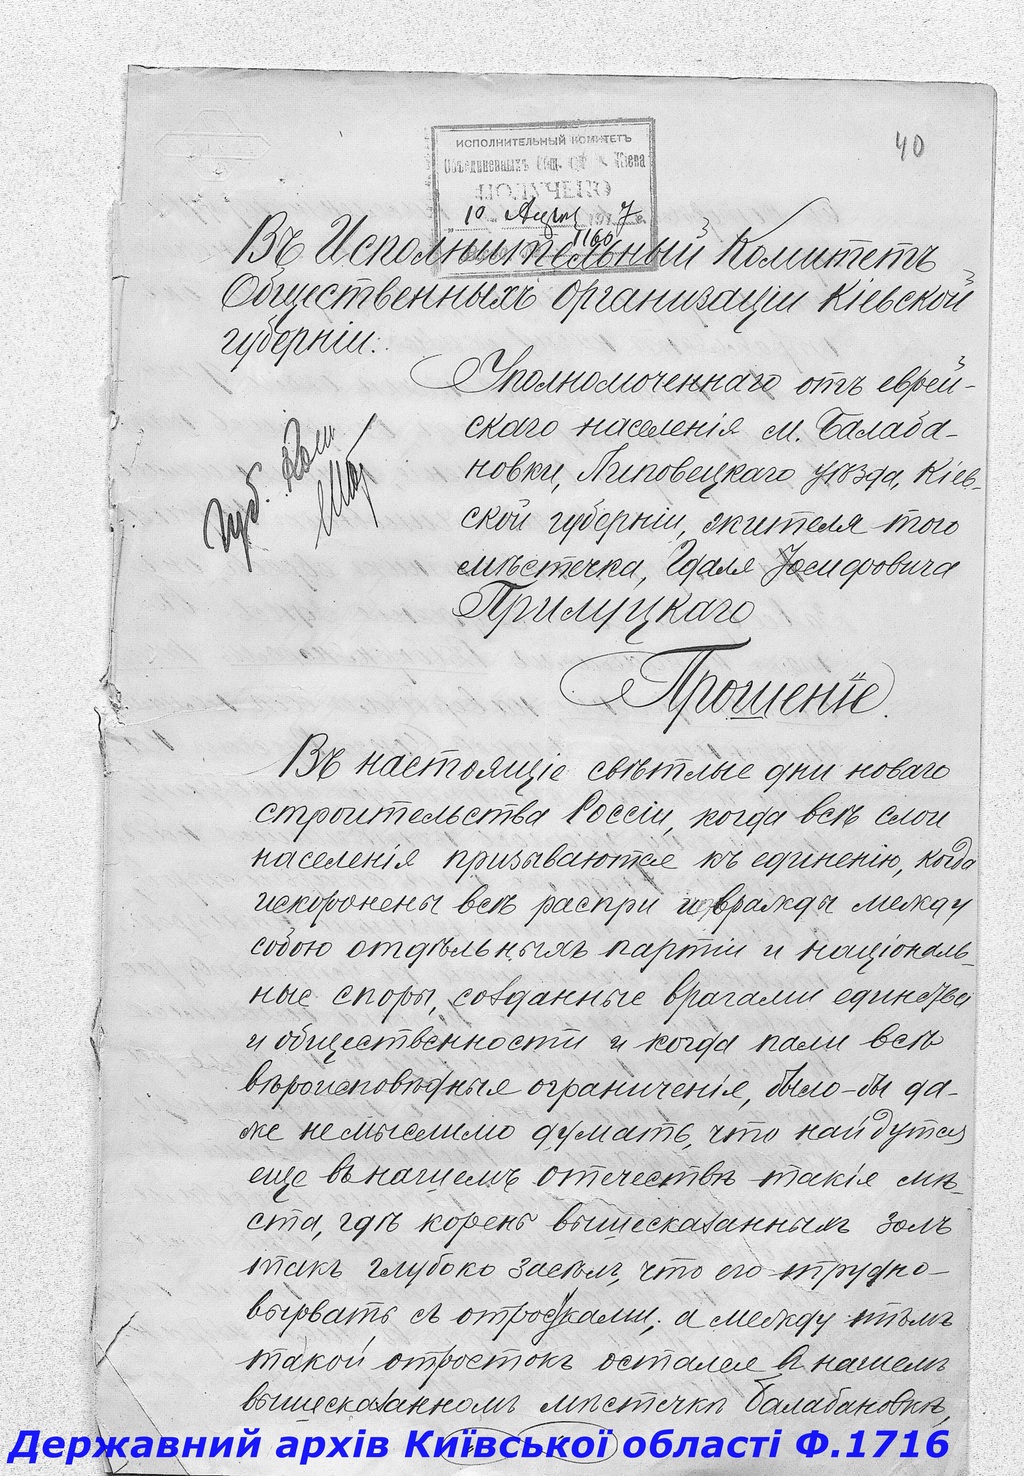 40
ИСПОЛНИТЕЛЬНЫЙ КОМИТЕТЪ
Объединенныхъ Общ. г. Кіева
ПОЛУЧЕНО
10 Апрѣл 1917 г.
1160
Въ Исполнительный Комитетъ
Общественныхъ Организаціи Кіевской
губерніи.
Уполномоченнаго отъ еврей-
скаго населенія м. Балаба-
новки, Липовецкаго уѣзда, Кіев-
ской губерніи, жителя того
мѣстечка, Гдаля Іосифовича
Прилуцкаго
Губ. Ком.
Прошеніе.
Въ настоящіе свѣтлые дни новаго
строительства Россіи, когда всѣ слои
населенія призываются къ единенію, когда
искоронены всѣ распри и вражды между
собою отдѣльныхъ партіи и національ-
ные споры, созданные врагами единства
и общественности и когда пали всѣ
вѣроисповѣдныя ограниченія, было-бы да-
же немыслимо думать, что найдутся
еще въ нашемъ отечествѣ такія мѣ-
ста, гдѣ корень вышесказаннымъ золъ
такъ глубоко засѣлъ, что его трудно
вырвать съ отростками; а между тѣмъ
такой отростокъ остался в нашемъ
вышесказанномъ мѣстечкѣ Балабановкѣ,
Державний архів Київської області Ф.1716